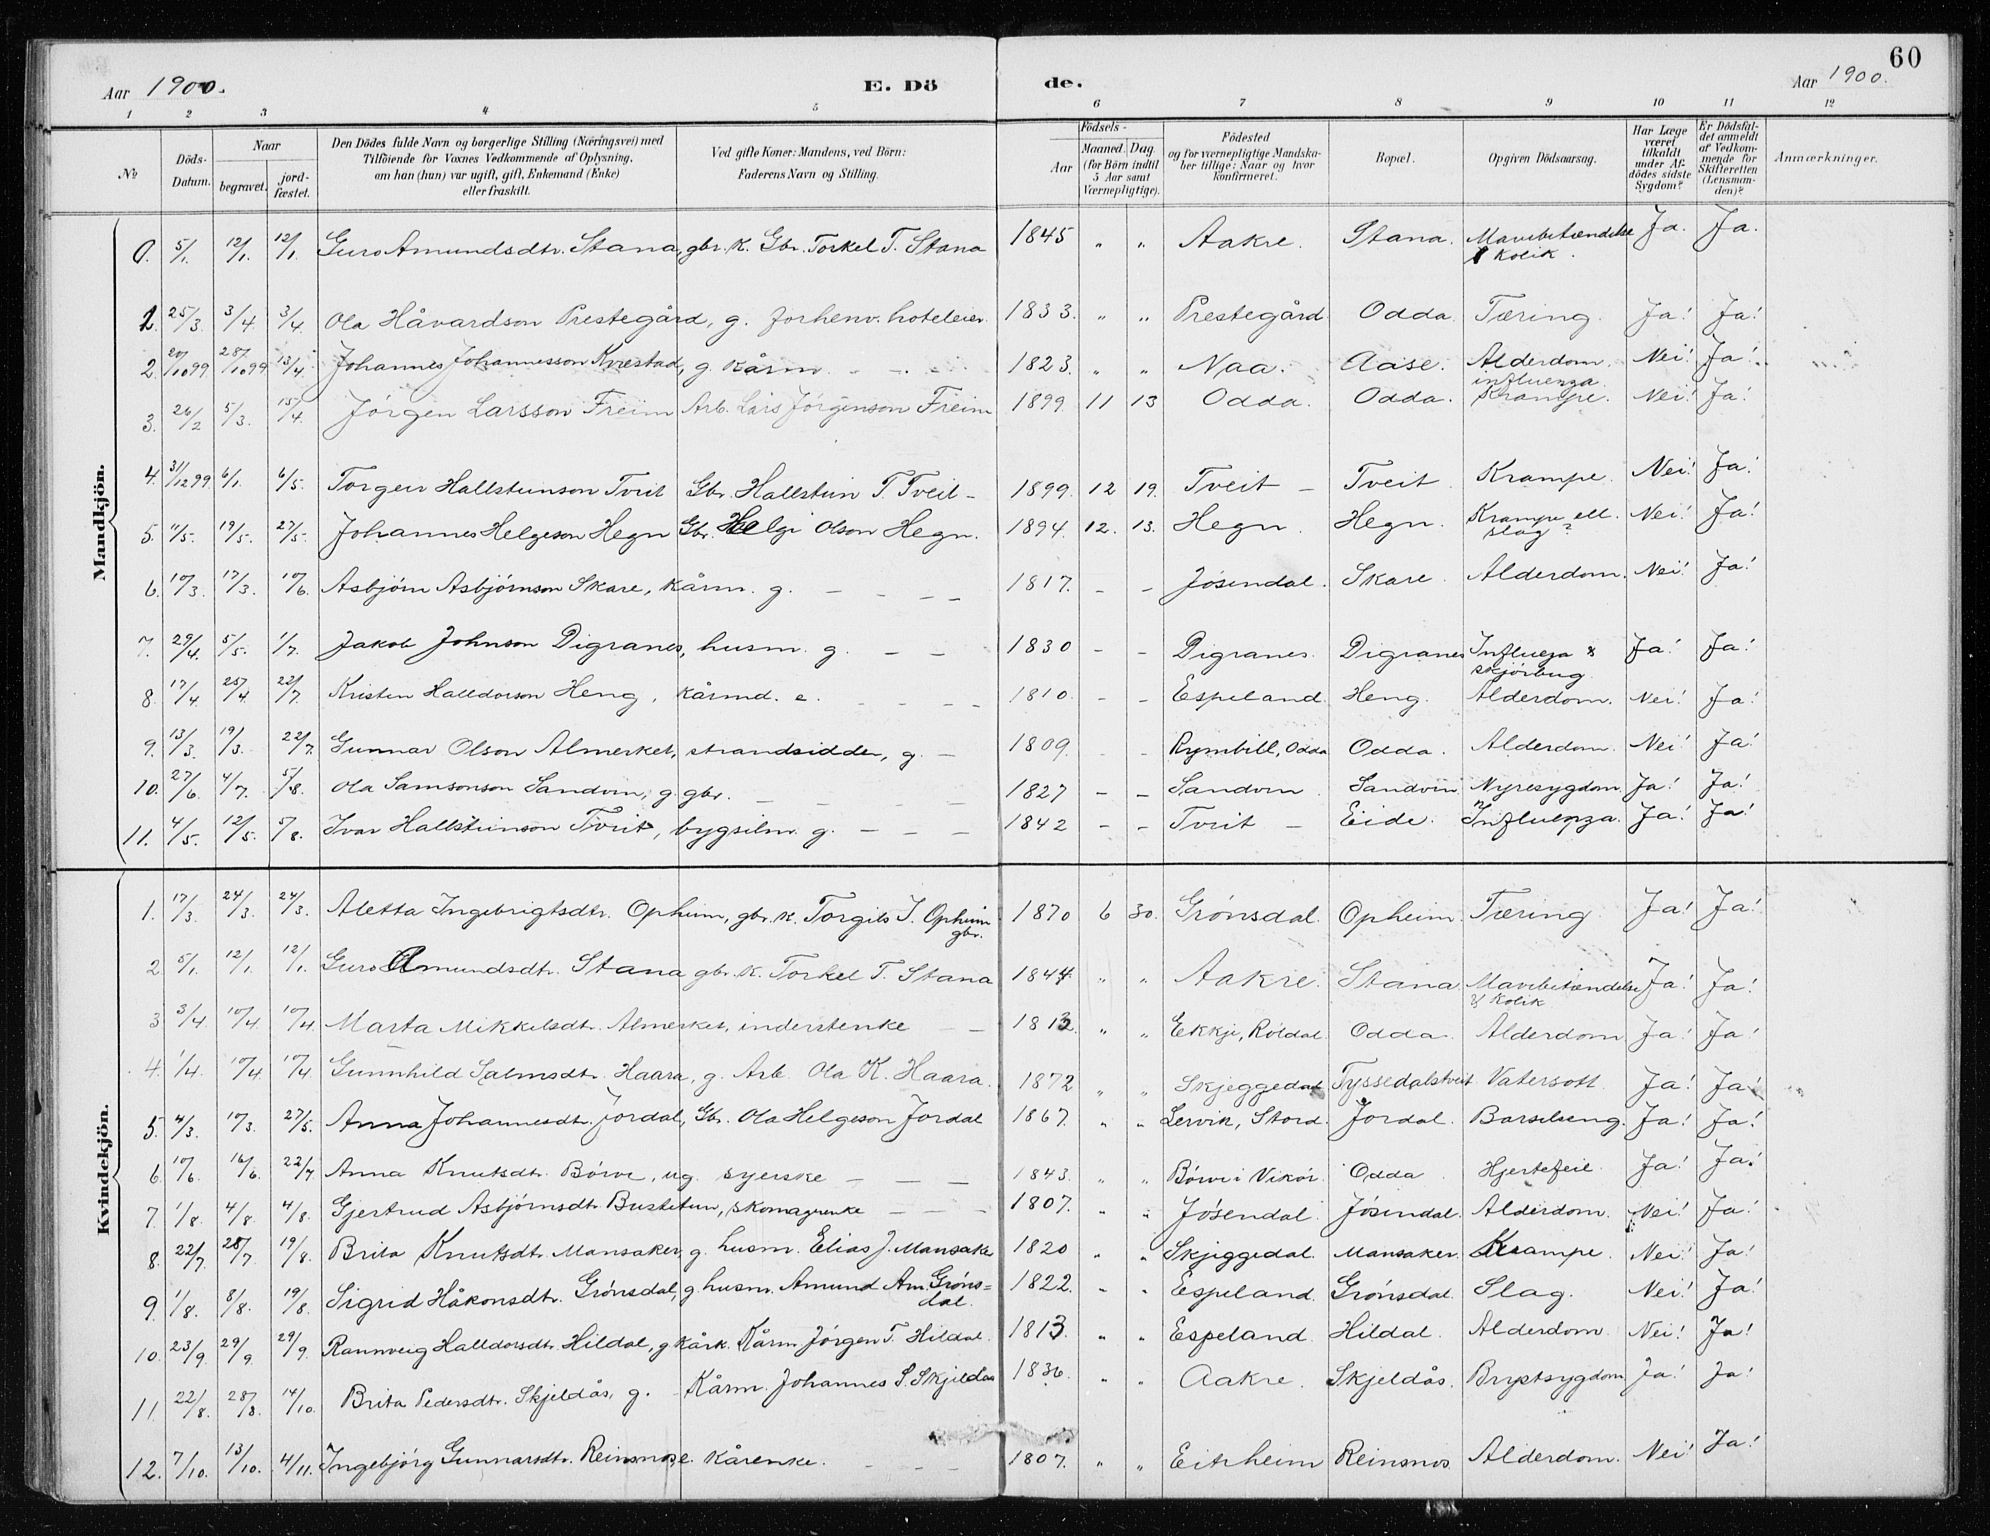 60
Aar 1900. E. Dö de. Aar 1900.
1 2 3 4 5 6 7 8 9 10 11 12
№ Döds-Datum. Naar begravet. jord-fæstet. Den Dödes fulde Navn og borgerlige Stilling (Næringsvei) med Tilföiende for Voxnes Vedkommende af Oplysning, om han (hun) var ugift, gift, Enkemand (Enke) eller fraskilt. Ved gifte Koner: Mandens, ved Börn: Faderens Navn og Stilling. Födsels- Aar Maaned. Dag. (for Börn indtil 5 Aar samt Værnepligtige). Födested og for værnepligtige Mandskaber tillige: Naar og hvor konfirmeret. Bopæl. Opgiven Dödsaarsag. Har Læge været tilkaldt under Afdödes sidste Sygdom? Er Dödsfaldet anmeldt af Vedkommende for Skifteretten (Lensmanden)? Anmærkninger.
Mandkjön.
0. 5/1. 12/1. 12/1. Guro Amundsdtr. Stana, gbr. k. Gbr. Torkel T. Stana 1845 " " Aakre. Stana. Mavebetændelse & Kolik. Ja. Ja.
1. 25/3. 3/4. 3/4. Ola Håvardson Prestegård, g. forhenv. hoteleier. 1833. " " Prestegård Odda. Tæring. Ja! Ja!
2. 20/10 99 28/10 99 13/4. Johannes Johannesson Kvestad, g. kårm. - - - 1823. " " Naa. Aase. Alderdom. influenza. Nei! Ja!
3. 26/2 5/3. 15/4. Jørgen Larsson Freim Arb. Lars Jørgenson Freim 1899. 11 13 Odda. Odda. Krampe. Nei! Ja!
4. 31/12 99. 6/1. 6/5. Torgeir Hallsteinson Tveit Gbr. Hallstein T. Tveit - 1899. 12 19. Tveit - Tveit. Krampe. Nei! Ja!
5. 11/5. 19/5. 27/5. Johannes Helgeson Hegn Gbr. Helgi Olson Hegn. 1894. 12. 13. Hegn. Hegn. Krampe ell. slag? Nei! Ja!
6. 10/3. 17/3. 10/6. Asbjørn Asbjørnson Skare, kårm. g. - - - - 1817. - - Jøsendal. Skare. Alderdom. Nei! Ja!
7. 29/4. 5/5. 1/7. Jakob Johnson Digranes, husm. g. - - 1830 - - Digranes. Digranes Influenza & skjørbug. Ja! Ja!
8. 17/4. 25/4 22/7 Kristen Halldorson Heng, kårmd. e. - - - - 1810. - - Espeland. Heng. Alderdom. Nei! Ja!
9. 13/3. 19/3. 22/7. Gunnar Olson Almerket, strandsidder, g. - 1809. - - Rymbill, Odda Odda. Alderdom. Nei! Ja!
10. 27/6 4/7. 5/8. Ola Samsonson Sandvin, g. gbr. - - - 1827 - - Sandvin Sandvin Nyresygdom Ja! Ja!
11. 4/5. 12/5. 5/8. Ivar Hallsteinson Tveit, bygselm. g. - - - 1842 - - Tveit - Eide. Influenza. Ja! Ja!
Kvindekjön.
1. 17/3. 24/3. 24/3. Aletta Ingebrigtsdtr. Opheim, gbr. k. Torgils I. Opheim gbr. 1870 6 30. Grønsdal. Opheim. Tæring. Ja! Ja!
2. 5/1. 12/1. 12/1. Guro Amundsdtr. Stana gbr. k. Torkel T. Stana 1844. " " Aakre. Stana. Mavebetændelse & Kolik Ja! Ja!
3 3/4. 10/4 10/4 Marta Mikkelsdtr. Almerket, inderstenke - 1813. " " Ekkje, Røldal. Odda. Alderdom Ja! Ja!
4. 1/4. 10/4 10/4 Gunnhild Salmsdtr. Haara, g. Arb. Ola K. Haara. 1872 " " Skjeggedal Tyssedalstveit Vatersott. Ja! Ja!
5. 4/3. 17/3. 27/5. Anna Johannesdtr. Jordal, Gbr. Ola Helgeson Jordal 1867. " " Lervik, Stord. Jordal. Barselseng. Ja! Ja!
6. 10/6. 16/6. 22/7 Anna Knutsdtr. Børve, ug. syerske - - - 1843. " " Børve i Vikør. Odda Hjertefeil. Ja! Ja!
7. 1/8. 4/8. 4/8. Gjertrud Asbjørnsdtr. Bustetun, skomagerenke - - - 1807. " " Jøsendal. Jøsendal. Alderdom. Nei! Ja!
8. 22/7. 28/7 19/8. Brita Knutsdtr. Mansaker, g. husm. Elias J. Mansaker 1820 " " Skjeggedal. Mansaker. Krampe. Nei! Ja!
9. 1/8. 8/8. 19/8. Sigrid Håkonsdtr. Grønsdal, g. husm. Amund Am. Grøns=dal. 1822. " " Espeland. Grønsdal. Slag. Nei! Ja!
10. 23/9. 29/9. 29/9. Rannveig Halldorsdtr. Hildal, g. kårk. Kårm. Jørgen T. Hildal. 1813. " " Espeland. Hildal. Alderdom. Nei! Ja!
11. 22/8. 28/8. 14/10. Brita Pedersdtr. Skjeldås, g. Kårm. Johannes S. Skjeldås 1836. " " Aakre. Skjeldås. Brystsygdom Ja! Ja!
12. 7/10. 13/10. 4/11. Ingebjørg Gunnarsdtr. Reinsnos, e. kårenke. - - - 1807. " " Eitrheim Reinsnos. Alderdom. Nei! Ja!